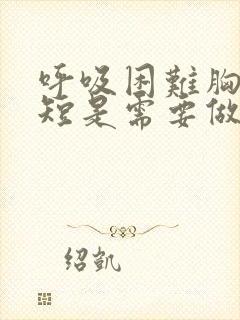 呼吸困難胸
短是需要做
绍凯